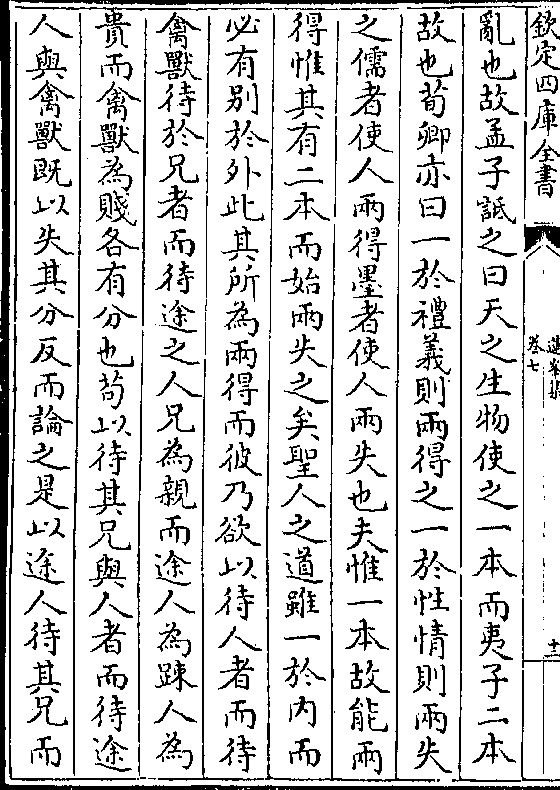 欽定四庫全書
卷七
十二
亂也故孟子詆之曰天之生物使之一本而夷子二本
故也荀卿亦曰一於禮義則兩得之一於性情則兩失
之儒者使人兩得墨者使人兩失也夫惟一本故能兩
得惟其有二本而始兩失之矣聖人之道雖一於內而
必有别於外此其所為兩得而彼乃欲以待人者而待
禽獸待於兄者而待途之人兄為親而途人為踈人為
貴而禽獸為賤各有分也苟以待其兄與人者而待途
人與禽獸既以失其分反而論之是以途人待其兄而